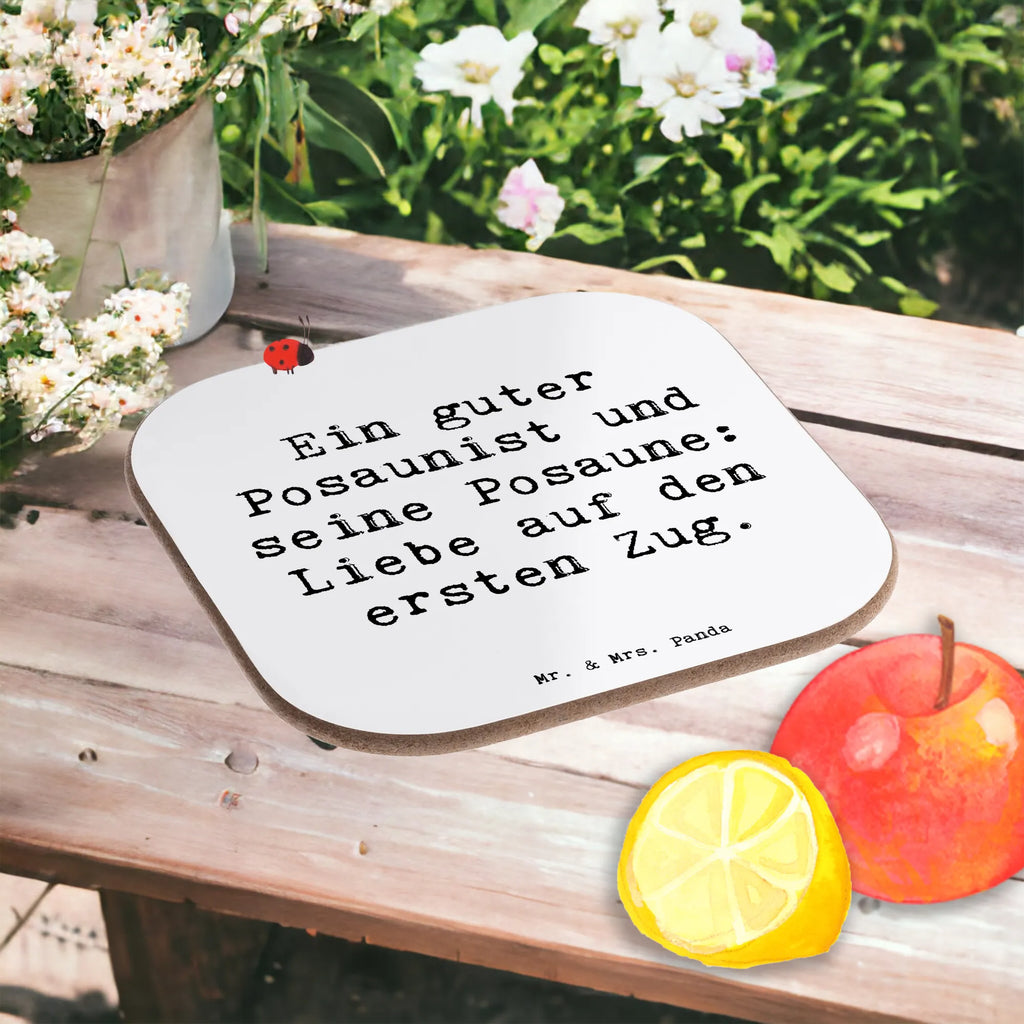 Ein guter
Posaunist und
seine Posaune:
Liebe auf den
ersten Zug.
Mr. & Mrs. Panda